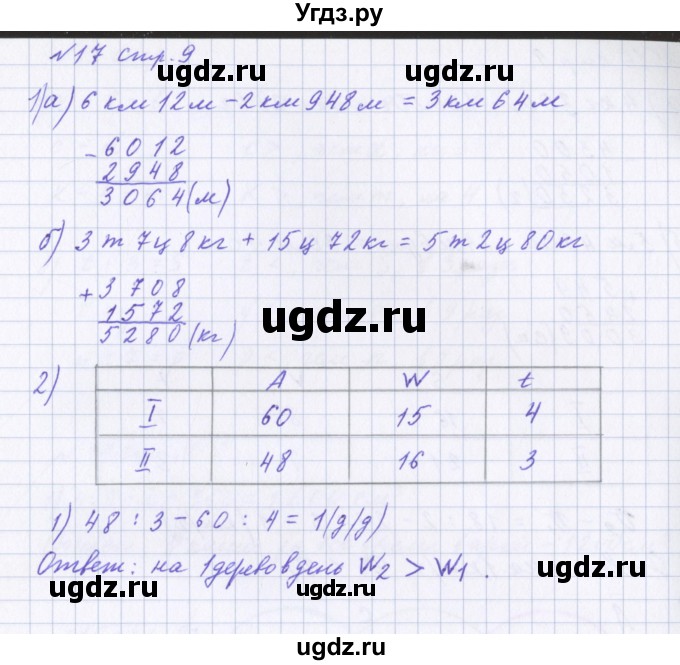 Угдз.ру
№17 стр.9
ugdz.ru ugdz.ru
1)а) 6 км 12 м - 2 км 948 м = 3 км 64 м
- 6012
2948
3064(м)
ugdz.ru
б) 3 т 7 ц 8 кг + 15 ц 72 кг = 5 т 2 ц 80 кг
+ 3708
1572
5280(кг)
ugdz.ru
2)
A W t
I 60 15 4
II 48 16 3
1) 48 : 3 - 60 : 4 = 1(д/д)
Ответ: на 1 дерево в день W2 > W1.
ugdz.ru ugdz.ru ugdz.ru
ugdz.ru